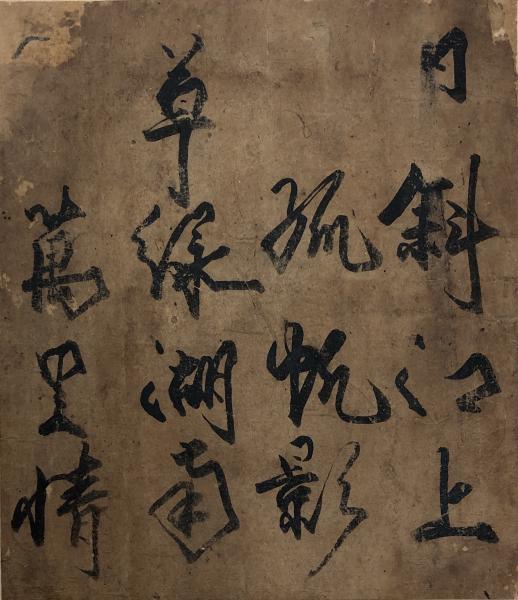 日斜江上
孤帆影
草綠湖南
萬里情